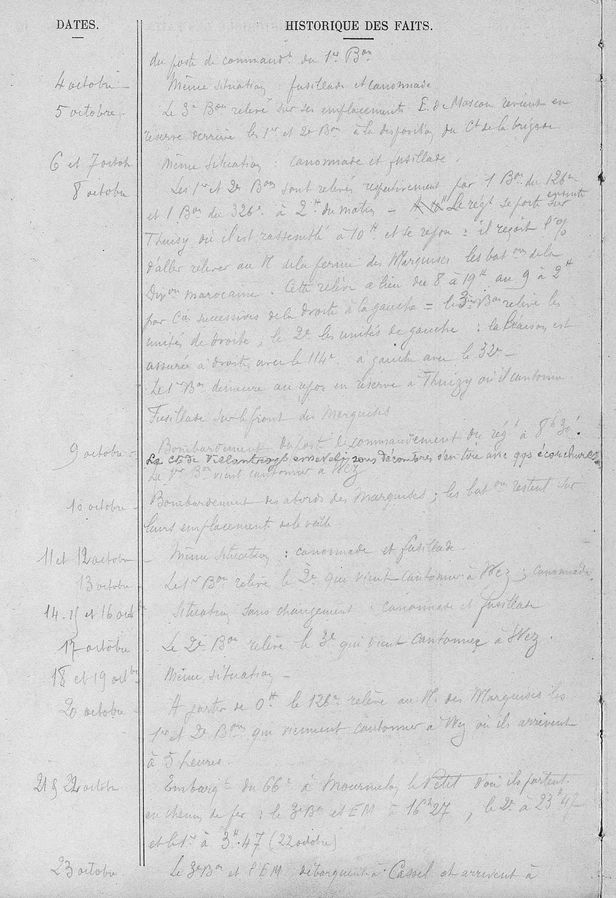 DATES. HISTORIQUE DES FAITS.
du poste de commandt du 1er Bon
4 octobre - Même situation : fusillade et canonnade
5 octobre - Le 3e Bon relevé sur ses emplacements E. de Moscou revient en
réserve derrière les 1er et 2e Bon à la disposition du Ct de la brigade
6 et 7 octob Même situation : canonnade et fusillade.
8 octobre Les 1er et 2e Bons sont relevés respectivement par 1 Bon du 126e
et 1 Bon du 326e à 2H du matin - Le régt se porte ensuite sur
Thuizy où il est rassemblé à 10H et se repose : il reçoit l'
d'aller relever au N. de la ferme des Marquises les batons de la
Divon marocaine. Cette relève a lieu du 8 à 19H au 9 à 2H
par Cies successives de la droite à la gauche = le 3e Bon relève les
unités de droite, le 2e les unités de gauche : la liaison est
assurée à droite avec le 114e à gauche avec le 32e -
Le 1er Bon demeure au repos en réserve à Thuizy où il cantonne
Fusillade sur le front des Marquises
9 octobre - Bombardement du poste de commandement du régt à 8h30.
Le Ct de Villantroys enseveli sous décombres s'en tire avec qqs écorchures
Le 1er Bon vient cantonner à Wez
10 octobre - Bombardement des abords des Marquises ; les batons restent sur
leurs emplacements de la veille
11 et 12 octobre - Même situation : canonnade et fusillade.
13 octobre Le 1er Bon relève le 2e qui vient cantonner à Wez ; canonnade.
14-15 et 16 octobre Situation sans changement : canonnade et fusillade
17 octobre - Le 2e Bon relève le 3e qui vient cantonner à Wez.
18 et 19 octbre Même situation -
20 octobre - A partir de 0H le 126e relève au N. des Marquises les
1er et 2e Bons qui viennent cantonner à Wez où ils arrivent
à 5 heures.
21 & 22 octobre Embargt du 66e à Mourmelon le Petit d'où ils partent
en chemin de fer : le 3e Bon et EM à 16h27, le 2e à 23H47
et le 1er à 3H.47 (22 octobre)
23 octobre Le 3e Bon et l'EM débarquent à Cassel et arrivent à